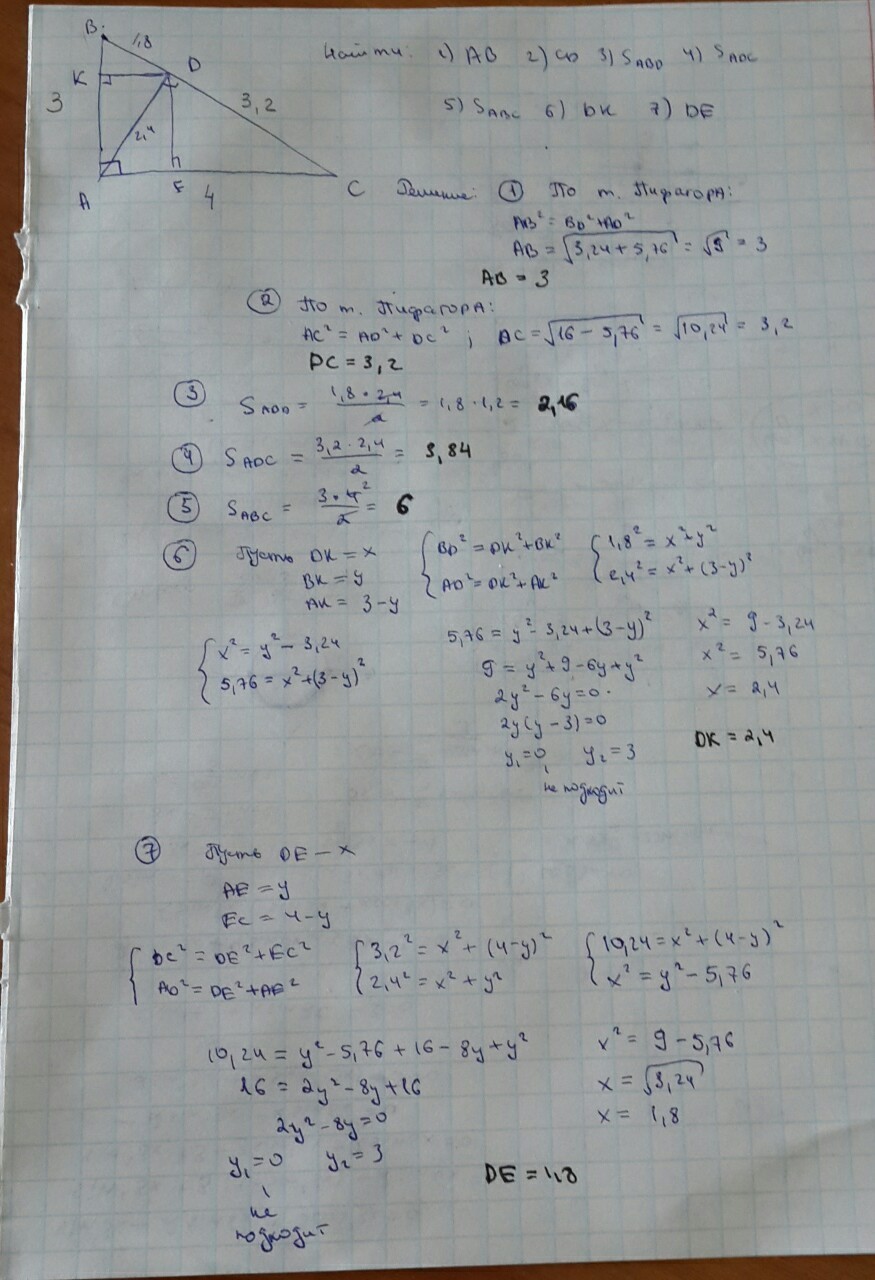 B
1,8
K
D
3
3,2
2,4
A
E
4
C
Найти: 1) AB 2) CD 3) S_ABD 4) S_ADC
5) S_ABC 6) DK 7) DE
Решение: ① По т. Пифагора:
AB² = BD² + AD²
AB = √(3,24 + 5,76) = √9 = 3
AB = 3
② По т. Пифагора:
AC² = AD² + DC² ; DC = √(16 − 5,76) = √(10,24) = 3,2
DC = 3,2
③ S_ABD = (1,8 · 2,4)/2 = 1,8 · 1,2 = 2,16
④ S_ADC = (3,2 · 2,4)/2 = 3,84
⑤ S_ABC = (3 · 4²)/2 = 6
⑥ Пусть DK = x
BK = y
AK = 3 − y
{ BD² = DK² + BK²
AD² = DK² + AK²
{ 1,8² = x² + y²
2,4² = x² + (3−y)²
{ x² = y² − 3,24
5,76 = x² + (3−y)²
5,76 = y² − 3,24 + (3−y)²
9 = y² + 9 − 6y + y²
2y² − 6y = 0
2y(y − 3) = 0
y₁ = 0 y₂ = 3
не подходит
x² = 9 − 3,24
x² = 5,76
x = 2,4
DK = 2,4
⑦ Пусть DE − x
AE = y
EC = 4 − y
{ DC² = DE² + EC²
AD² = DE² + AE²
{ 3,2² = x² + (4−y)²
2,4² = x² + y²
{ 10,24 = x² + (4−y)²
x² = y² − 5,76
10,24 = y² − 5,76 + 16 − 8y + y²
16 = 2y² − 8y + 16
2y² − 8y = 0
y₁ = 0 y₂ = 3
не
подходит
x² = 9 − 5,76
x = √(3,24)
x = 1,8
DE = 1,8